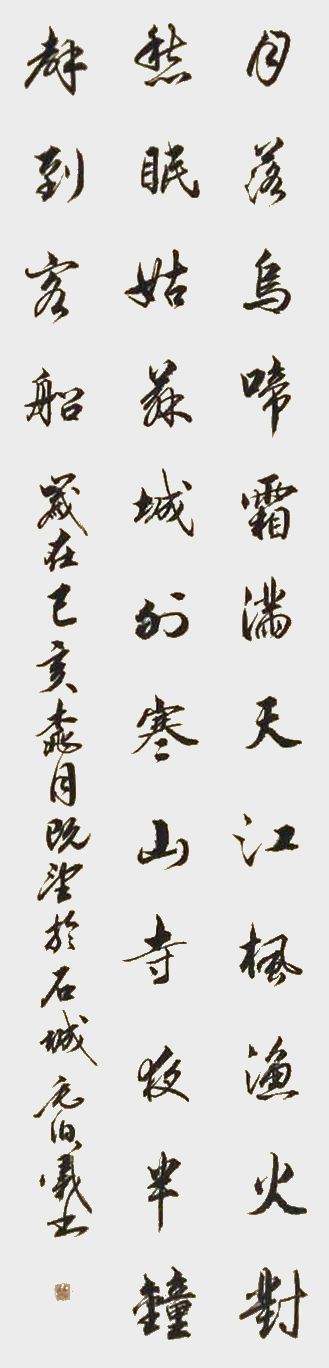 月落烏啼霜滿天江楓漁火對
愁眠姑蘇城外寒山寺夜半鐘
聲到客船 歲在己亥月既望於石城 書